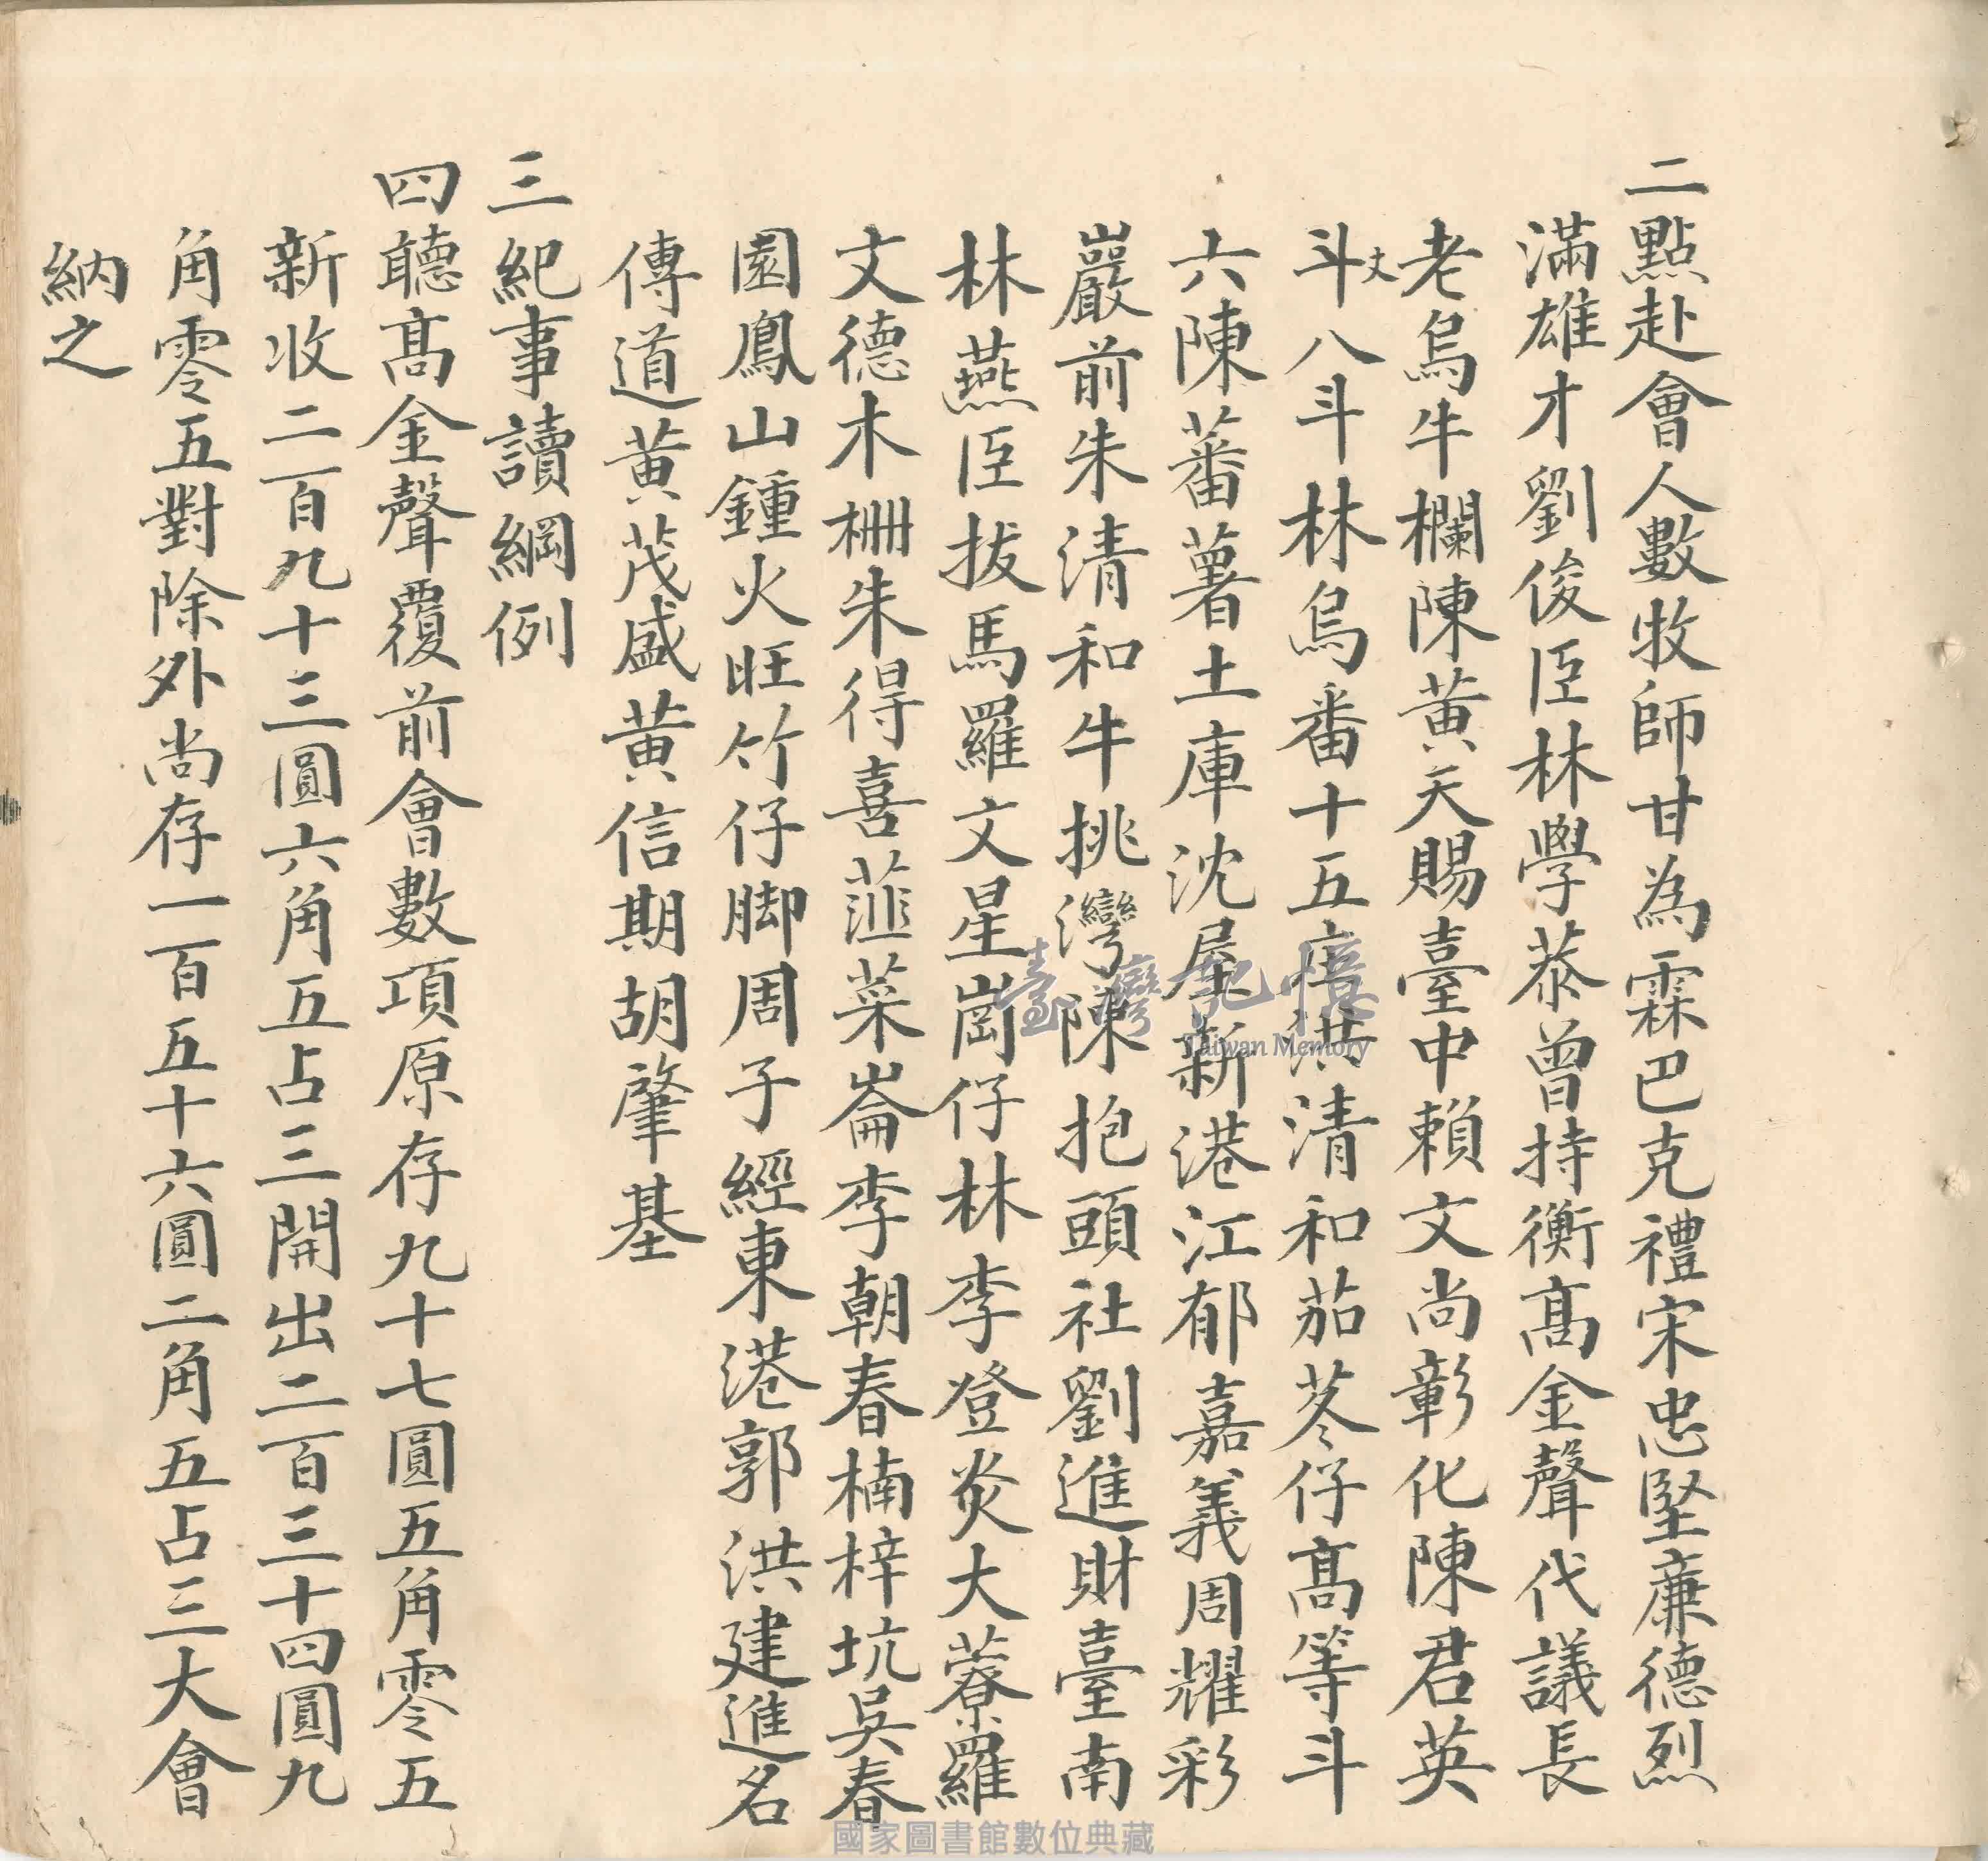 二點赴會人數牧師甘為霖巴克禮宋忠堅廉德烈
滿雄才劉俊臣林學恭曾持衡髙金聲代議長
老烏牛欄陳黃天賜臺中賴文尚彰化陳君英
斗六八斗林烏番十五庄洪清和茄苳仔髙等斗
六陳蕃薯土庫沈屋新港江郁嘉義周耀彩
巖前朱清和牛挑灣陳抱頭社劉進財臺南
林燕臣拔馬羅文星崗仔林李登炎大藔羅
文德木柵朱得喜韮菜崙李朝春楠梓坑吳春
園鳳山鍾火旺竹仔脚周子經東港郭洪建進名
傳道黃茂盛黃信期胡肇基
三紀事讀綱例
四聽髙金聲覆前會數項原存九十七圓五角零五
新收二百九十三圓六角五占三開出二百三十四圓九
角零五對除外尚存一百五十六圓二角五占三大會
納之
臺灣記憶
Taiwan Memory
國家圖書館數位典藏